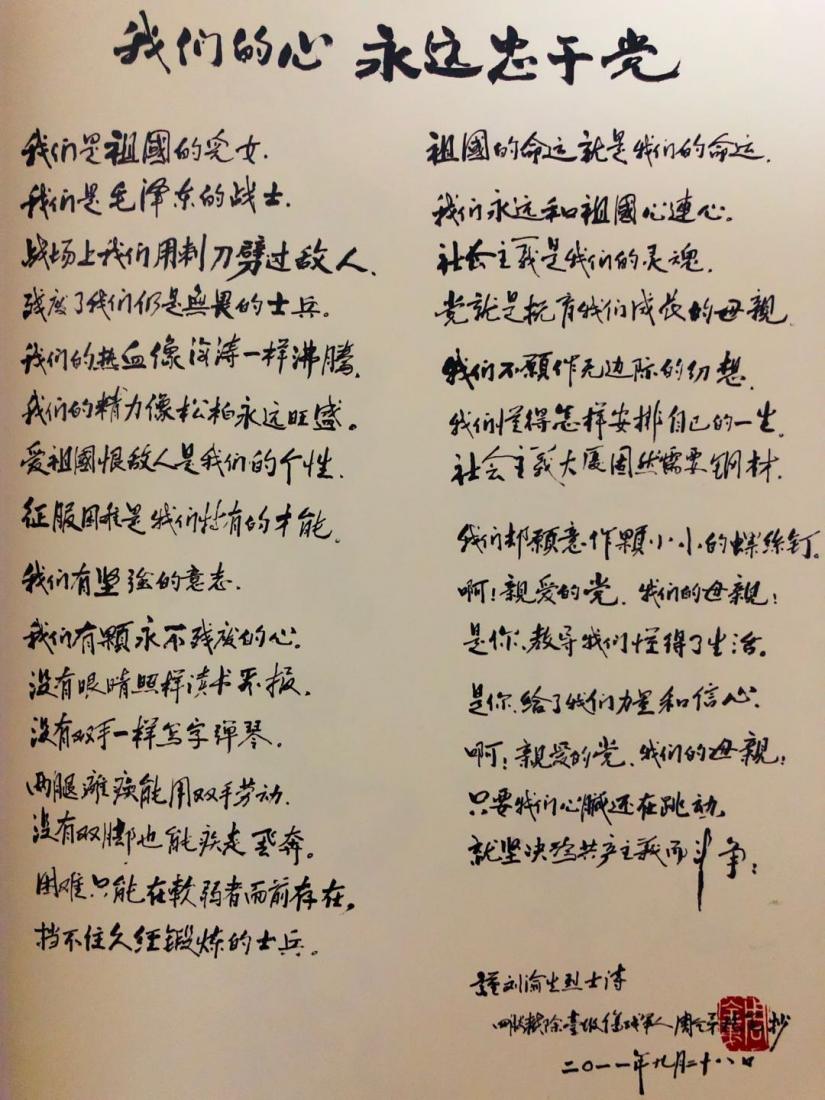 我们的心 永远忠于党
我们是祖國的兒女.
我们是毛泽东的战士.
战场上我们用刺刀劈过敌人、
残废了我们仍是無畏的士兵。
我们的热血像波涛一样沸腾,
我们的精力像松柏永远旺盛。
爱祖國恨敌人是我们的个性.
征服困难是我们特有的才能.
我们有坚强的意志.
我们有颗永不残废的心.
没有眼睛照样读书看报.
没有双手一样写字弹琴.
两腿瘫痪能用双手劳动.
没有双脚也能疾走飛奔。
困难只能在軟弱者面前存在,
挡不住久经鍛炼的士兵。
祖國的命运就是我们的命运.
我们永远和祖國心連心。
社会主義是我们的灵魂.
党就是抚育我们成长的母親.
我们不願作无边际的幻想.
我们懂得怎样安排自己的一生.
社会主義大厦固然需要钢材.
我们却願意作顆小小的螺絲釘。
啊!親爱的党.我们的母親!
是你、教导我们懂得了生活。
是你、给了我们力量和信心.
啊!親爱的党、我们的母親!
只要我们心臟还在跳动,
就坚决为共产主義而斗争!
刘渝生烈士诗
二〇一一年九月二十八日